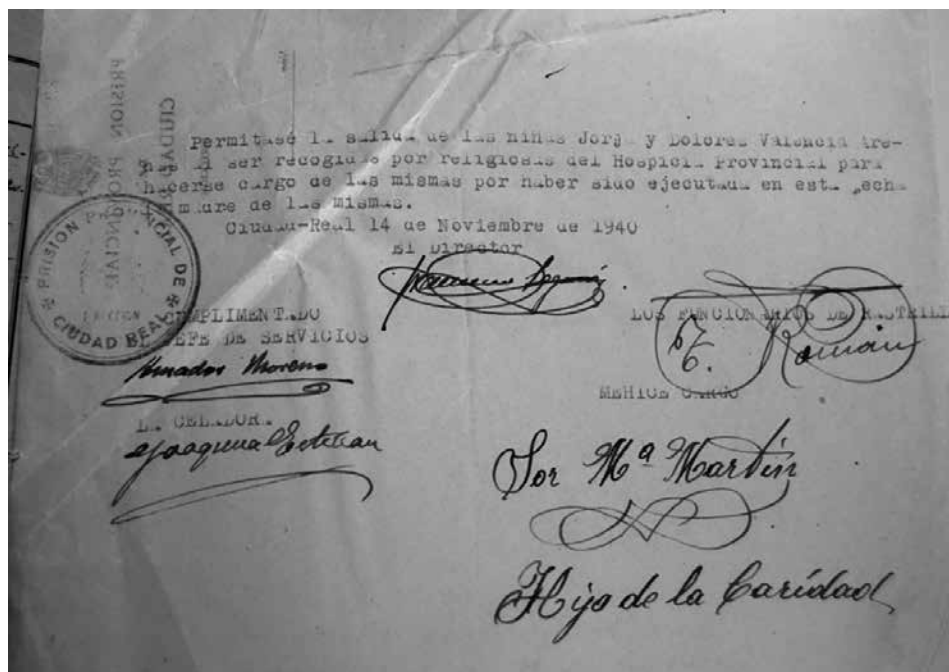 Permitasé la salida de las niñas Jorja y Dolores Valencia Are-
nas al ser recogidas por religiosas del Hospicio Provincial para
hacerse cargo de las mismas por haber sido ejecutada en esta fecha
madre de las mismas.
Ciudad-Real 14 de Noviembre de 1940
El Director
PRISION PROVINCIAL DE
CIUDAD REAL
CUMPLIMENTADO
EL JEFE DE SERVICIOS
Amador Moreno
LA CELADORA
Joaquina Esteban
LOS FUNCIONARIOS DE RASTRILLO
Román
MEHICE CARGO
Sor Mª Martín
Hija de la Caridad
PRISION PROVINCIAL
CIUDAD